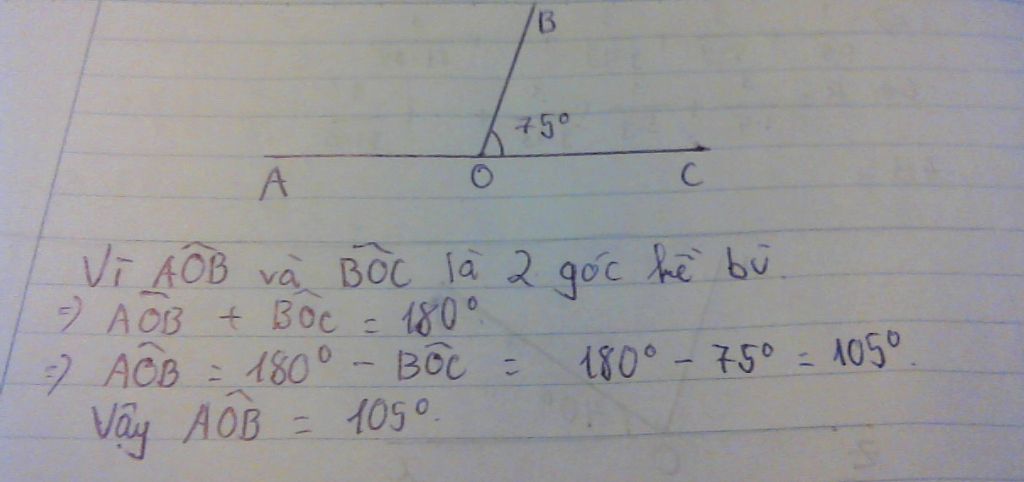 B
75°
A O C
Vì AÔB và BÔC là 2 góc kề bù.
=) AÔB + BÔC = 180°
=) AÔB = 180° - BÔC = 180° - 75° = 105°.
Vậy AÔB = 105°.